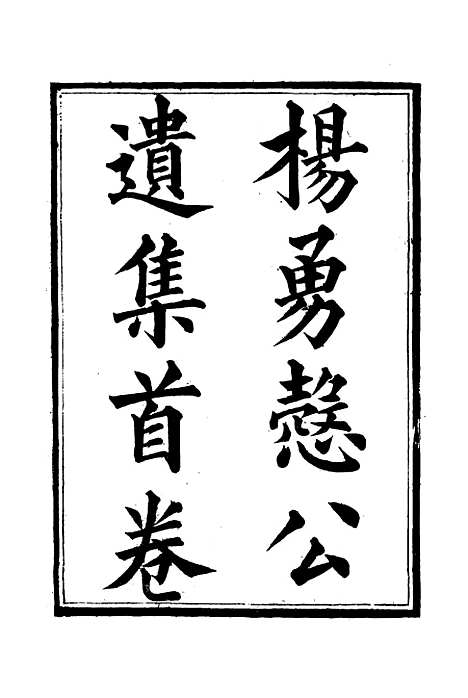 楊勇愨公
遺集首卷